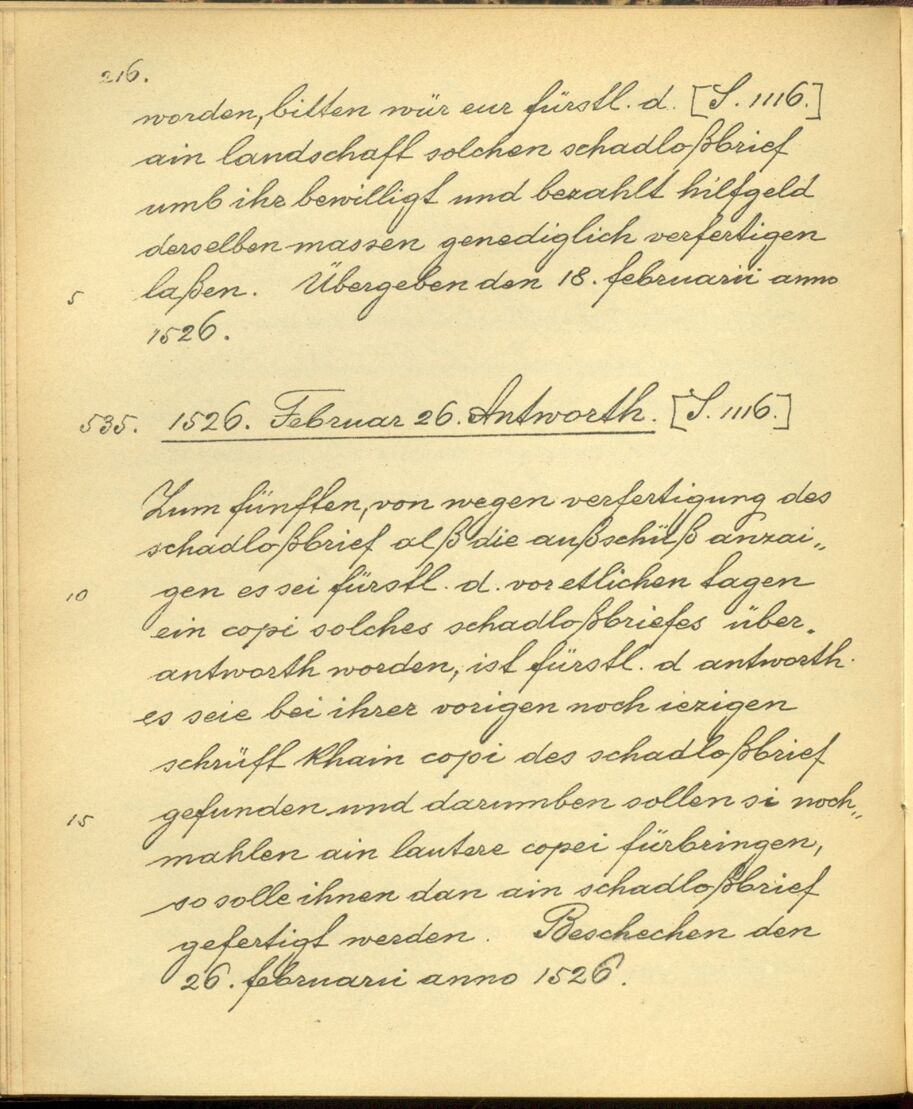 216.
worden, bitten wür eur fürstl. d. [S. 1116.]
ain landschaft solchen schadloßbrief
umb ihr bewilligt und bezahlt hilfgeld
derselben massen genediglich verfertigen
5 laßen. Übergeben den 18. februarii anno
1526.
535. 1526. Februar 26. Antworth. [S. 1116.]
Zum fünften, von wegen verfertigung des
schadloßbrief alß die außschüß anzai„
10 gen es sei fürstl. d. vor etlichen tagen
ein copi solches schadloßbriefes über„
antworth worden, ist fürstl. d antworth.
es seie bei ihrer vorigen noch iezigen
schrüft khain copi des schadloßbrief
15 gefunden und darumben sollen si noch„
mahlen ain lautere copei fürbringen,
so solle ihnen dan ain schadloßbrief
gefertigt werden. Beschechen den
26. februarii anno 1526.